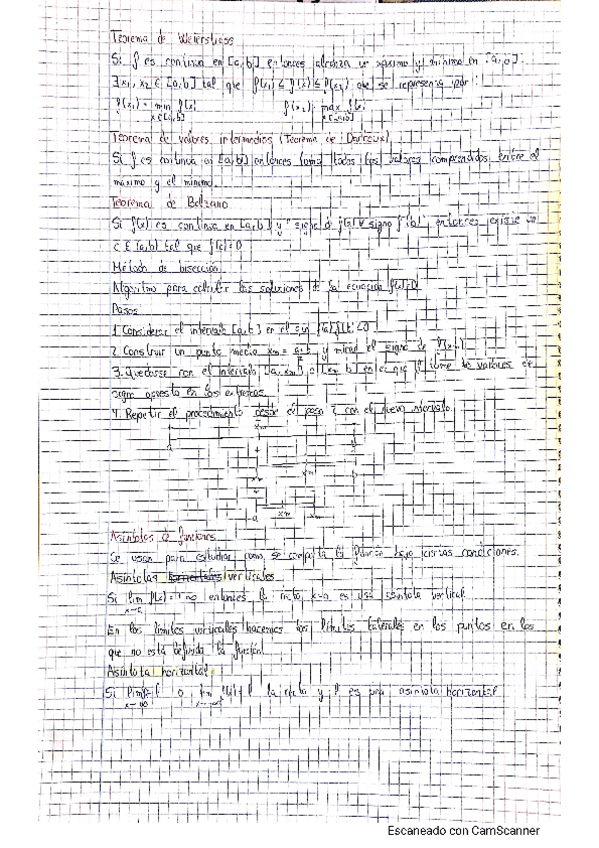 Teorema de Weierstrass
Si f es continua en [a,b] entonces alcanza un máximo y mínimo en [a,b]:
∃ x₁, x₂ ∈ [a,b] tal que f(x₁) ≤ f(x) ≤ f(x₂) que se representa por:
f(x₁) = min f(x) f(x₂) = max f(x)
x∈[a,b] x∈[a,b]
Teorema de valores intermedios (Teorema de Darboux)
Si f es continua en [a,b] entonces toma todos los valores comprendidos entre el
máximo y el mínimo.
Teorema de Bolzano
Si f(x) es continua en [a,b] y signo f(a) ≠ signo f(b), entonces existe un
c ∈ (a,b) tal que f(c)=0
Método de bisección
Algoritmo para calcular las soluciones de la ecuación f(x)=0
Pasos
1. Considerar el intervalo [a,b] en el que f(a)f(b)<0
2. Construir un punto medio xm = y mirar el signo de f(xm)
3. Quedarse con el intervalo [a,xm] o [xm,b] en el que f tome valores de
signo opuesto en los extremos.
4. Repetir el procedimiento desde el paso 2 con el nuevo intervalo.
xm
a
xm
a xm
Asíntotas de funciones
Se usan para estudiar como se comporta la función bajo ciertas condiciones.
Asíntotas verticales
Si lim f(x) = ±∞ entonces la recta x=a es una asíntota vertical
x→a
En los límites verticales hacemos los límites laterales en los puntos en los
que no está definida la función.
Asíntota horizontal
Si lim f(x)=l o lim f(x)=l la recta y=l es una asíntota horizontal
x→∞ x→-∞
Escaneado con CamScanner